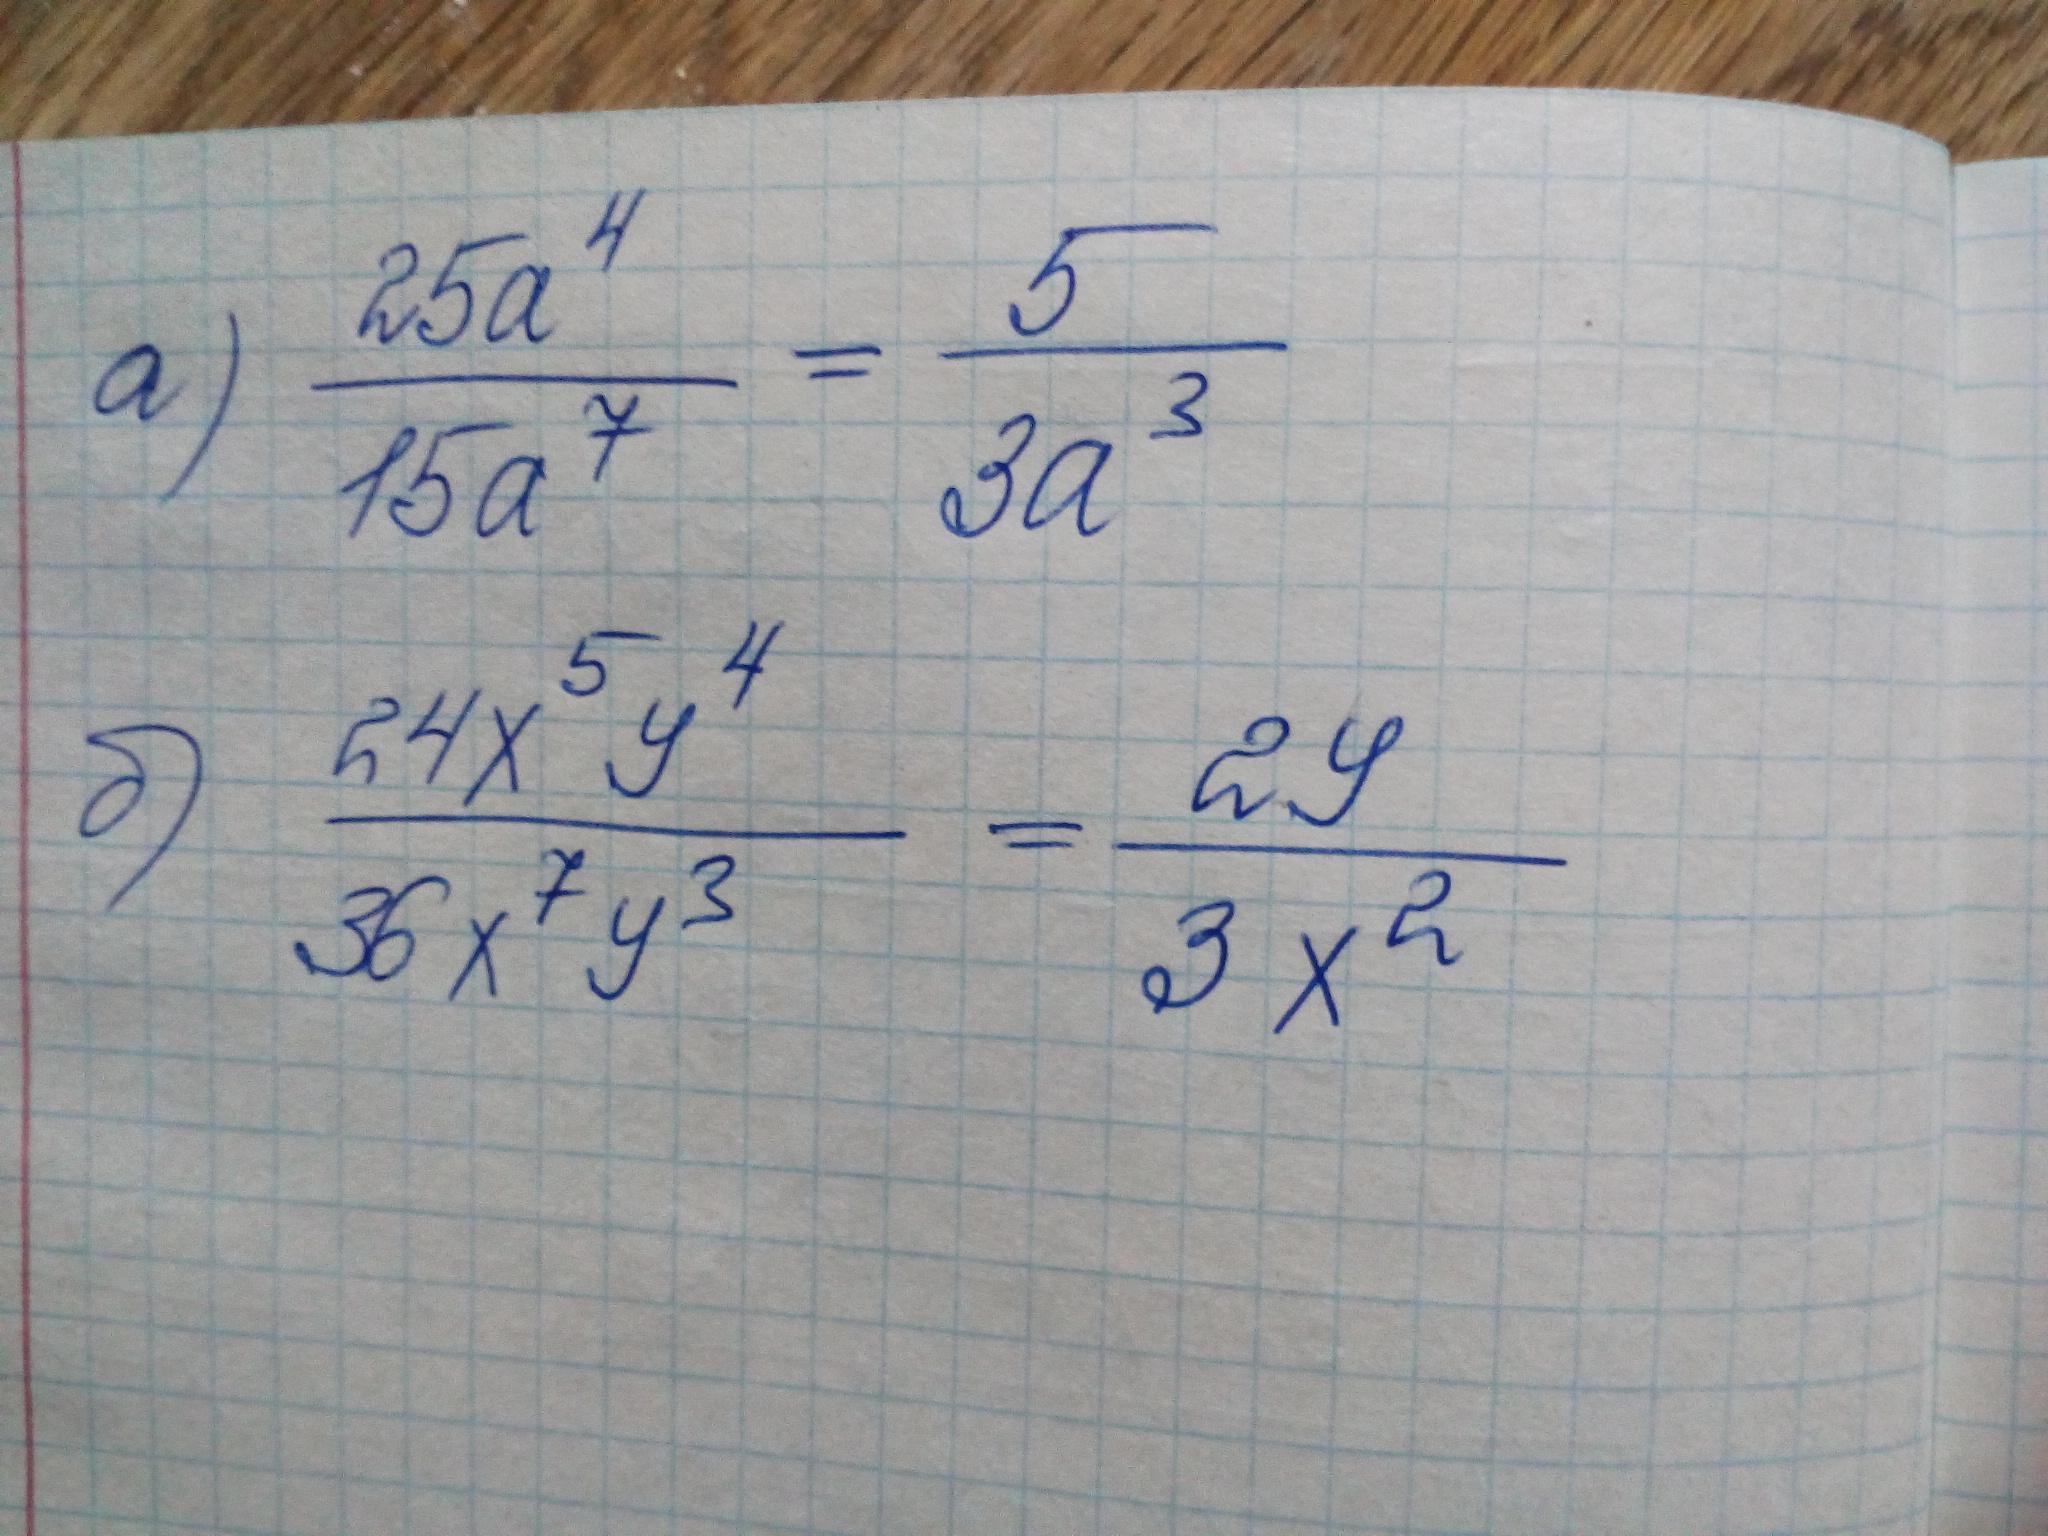 а) 25a⁴/15a⁷ = 5/3a³
б) 24x⁵y⁴/36x⁷y³ = 2y/3x²